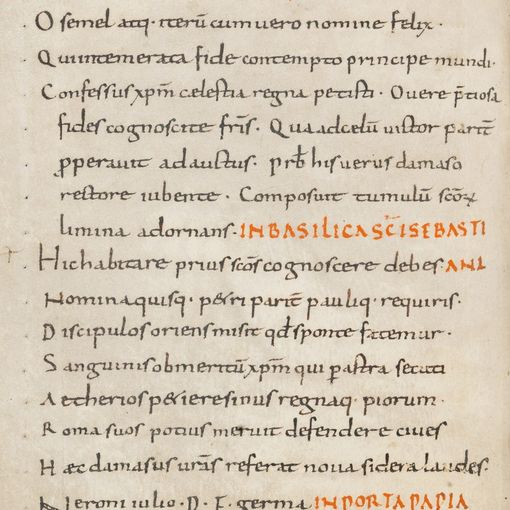 O semel atq· iterū cum uero nomine felix·
Qui intemerata fide contempto principe mundi·
Confessus xp̄m caelestia regna petisti· O uere p̄tiosa
fides cognoscite fr̄s· Qua ad celū uictor parit̄
ꝓperauit ad auctus· prb̄ his uerus damaso
rectore iubente· Composuit tumulū sc̄oꝝ
limina adornans· IN BASILICA SC̄I SEBASTI
Hic habitare prius sc̄os cognoscere debes· ANI
Nomina quisq· p&ri parit̄ pauliq· requiris·
Discipulos oriens misit qd̄ sponte fatemur·
Sanguinis ob meritū xp̄m qui ꝑ astra secuti
Aetherios p&iere sinus regnaq· piorum·
Roma suos potius meruit defendere ciues
Haec damasus ur̄is referat noua sidera laudes·
Neroni iulio· D· F· germa IN PORTA PAPIA